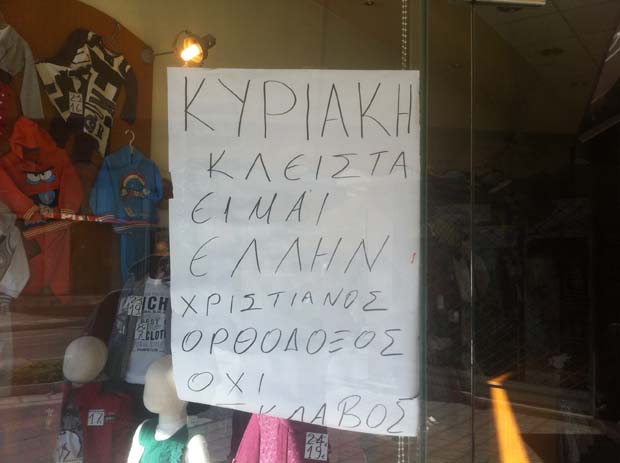 ΚΥΡΙΑΚΗ
ΚΛΕΙΣΤΑ
ΕΙΜΑΙ
ΕΛΛΗΝ
ΧΡΙΣΤΙΑΝΟΣ
ΟΡΘΟΔΟΞΟΣ
ΟΧΙ
ΣΚΛΑΒΟΣ
24
19